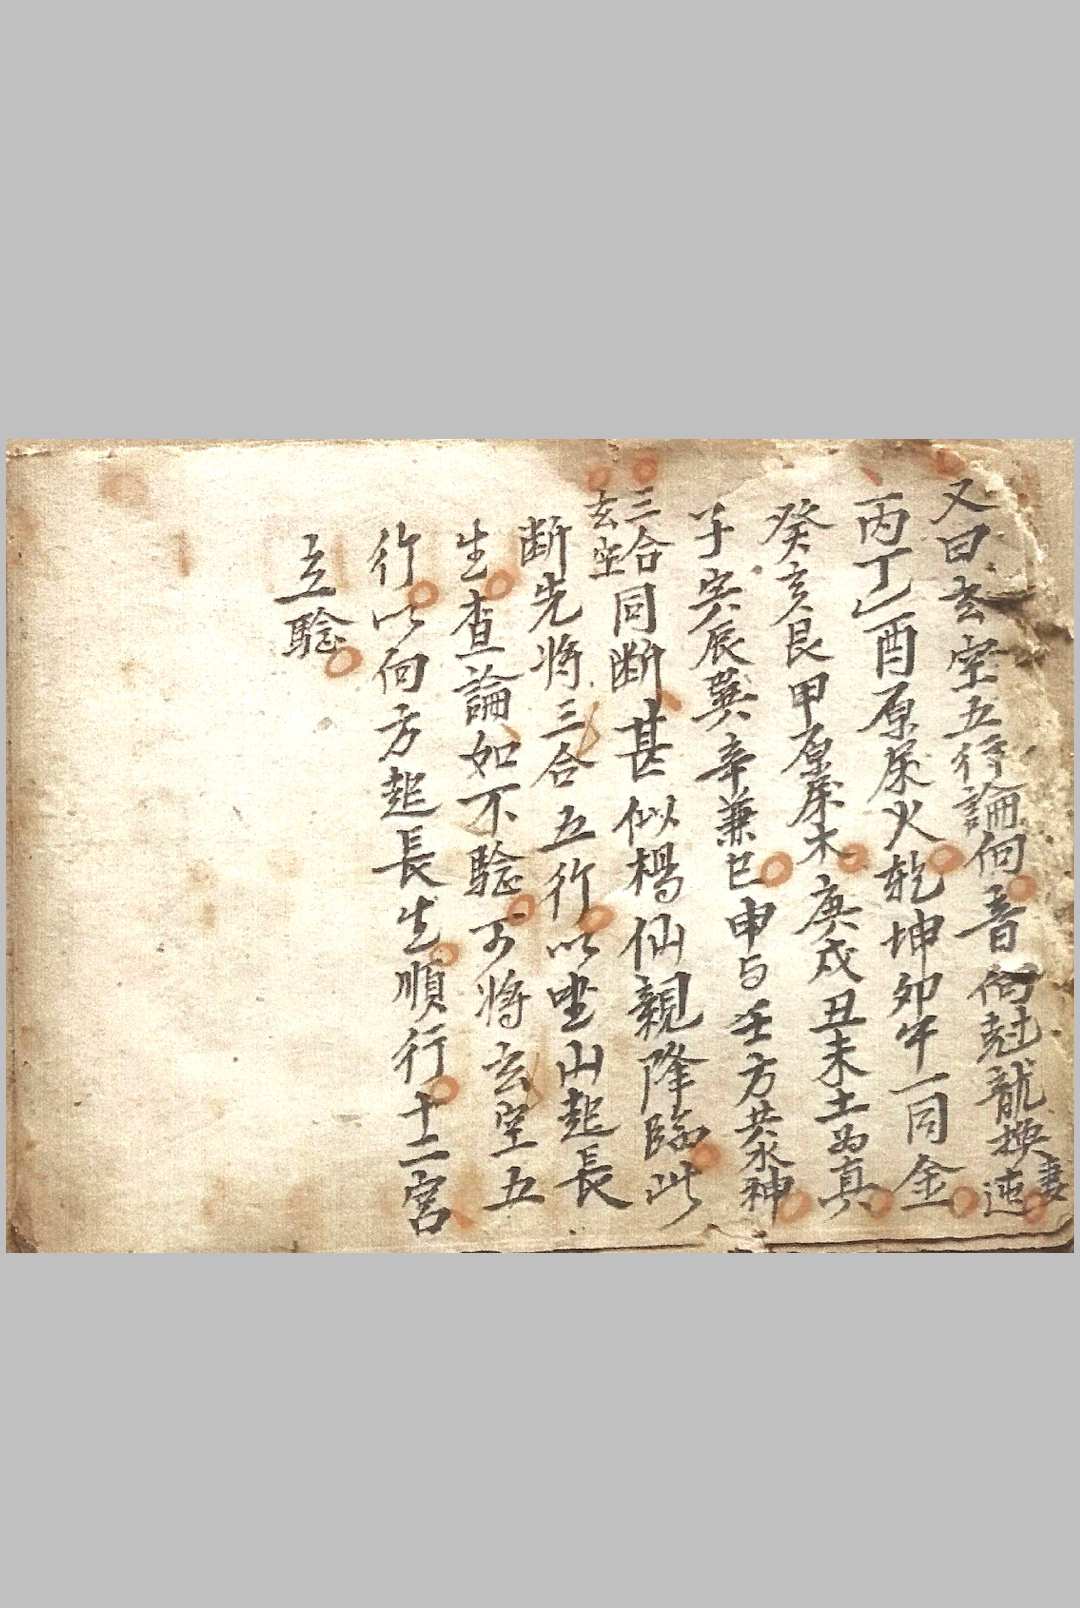 又曰玄空五行論向音向尅龍換妻迍
丙丁乙酉原屬火乾坤卯午一同金
癸亥艮甲原屬木庚戌丑未土為真
子寅辰巽辛兼巳申与壬方共水神
三合
玄空
同断甚似楊仙親降臨此
断先將三合五行以坐山起長
生查論如不驗可將玄空五
行以向方起長生順行十二宮
立驗